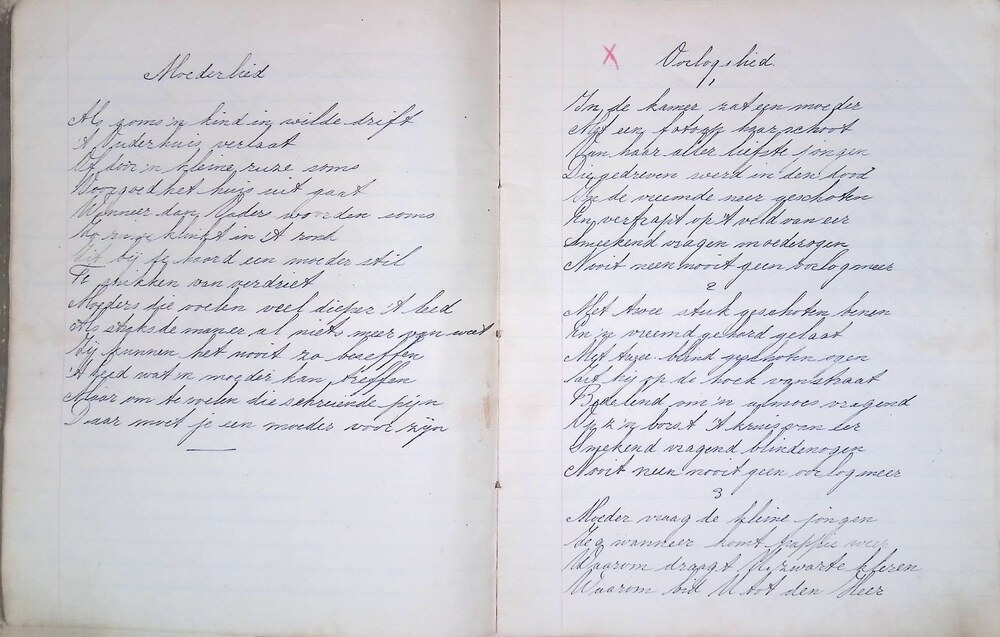 Moederlied
Als soms 'n kind in wilde drift
't Ouderhuis verlaat
Of door 'n kleine ruze soms
Voorgoed het huis uit gaat
Wanneer dan Vaders woorden soms
klinkt in 't rond
Zit bij haard een moeder stil
Te snikken van verdriet
Moeders die voelen veel dieper 't leed
Als straks de man er al niets meer van weet
Zij kunnen het nooit zo beseffen
't Leed wat 'n moeder kan treffen
Maar om te voelen die schreiende pijn
Daar moet je een moeder voor zijn
X Oorlogslied
1
In de kamer zat een moeder
Met een foto op haar schoot
Van haar aller liefste jongen
Die gedreven werd in den dood
In de vreemde neer geschoten
En vertrapt op 't veld van eer
Smeekend vragen moederogen
Nooit neen nooit geen oorlog meer
2
Met twee stuk geschoten benen
En 'n vreemd gehord gelaat
Met twee blind geschoten ogen
Zit hij op de hoek van straat
Bedelend om 'n aalmoes vragend
Op z'n borst 't kruis van eer
Smekend vragend blindenogen
Nooit neen nooit geen oorlog meer
3
Moeder vraag de kleine jongen
Zeg wanneer komt pappie weer
Waarom draagt U zwarte kleren
Waarom bid U tot den Heer